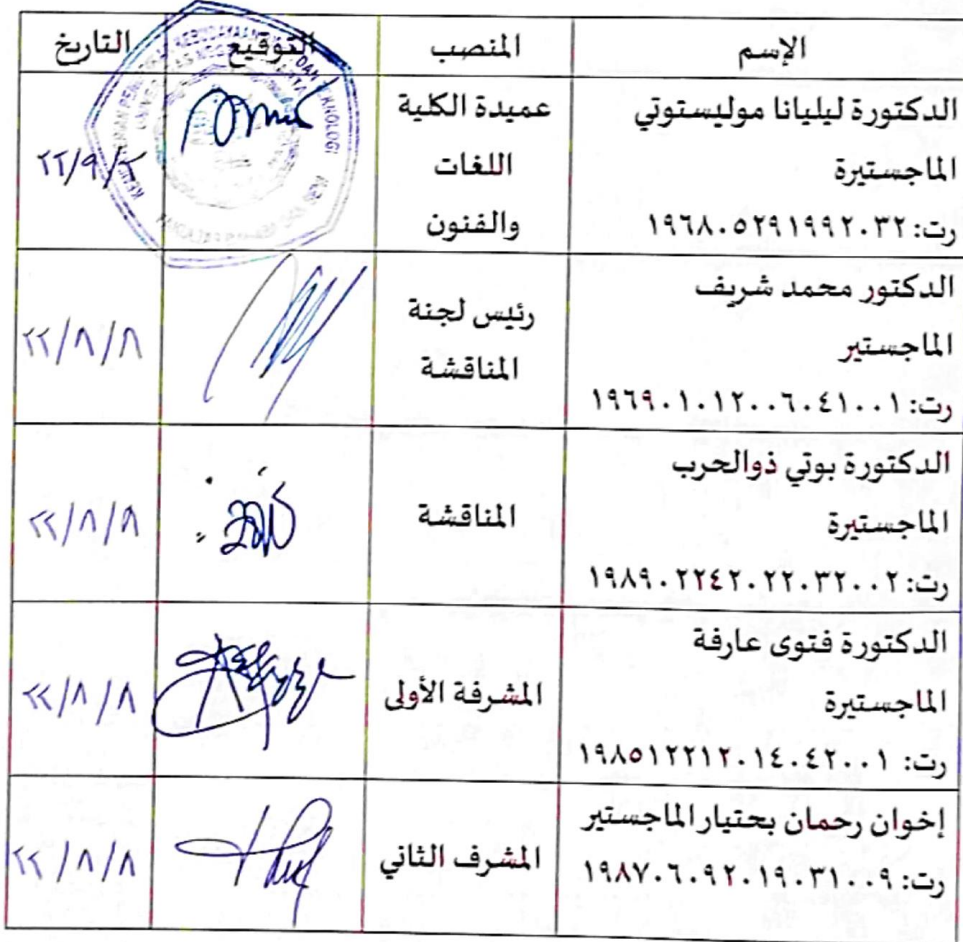 الإسم المنصب التوقيع التاريخ
الدكتورة ليليانا موليستوتي
الماجستيرة
رت: ١٩٦٨٠٥٢٩١٩٩٢٠٣٢
عميدة الكلية
اللغات
والفنون
الدكتور محمد شريف
الماجستير
رت: ١٩٦٩٠١٠١٢٠٠٦٠٤١٠٠١
رئيس لجنة
المناقشة
٢٢/٨/٨
الدكتورة بوتي ذوالحرب
الماجستيرة
رت: ١٩٨٩٠٢٢٤٢٠٢٢٠٣٢٠٠٢
المناقشة
٢٢/٨/٨
الدكتورة فتوى عارفة
الماجستيرة
رت: ١٩٨٥١٢٢١٢٠١٤٠٤٢٠٠١
المشرفة الأولى
٢٢/٨/٨
إخوان رحمان بحتيار الماجستير
رت: ١٩٨٧٠٦٠٩٢٠١٩٠٣١٠٠٩
المشرف الثاني
٢٢/٨/٨